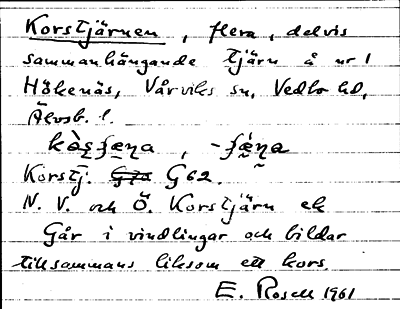 Korstjärnen, flera, delvis
sammanhängande tjärn å nr 1
Hökenäs, Vårviks sn, Vedbo hd,
Älvsb. l.
Korstj. G62.
N. V. och Ö. Korstjärn ek
Går i vindlingar och bildar
tillsammans liksom ett kors.
E. Rosell 1961